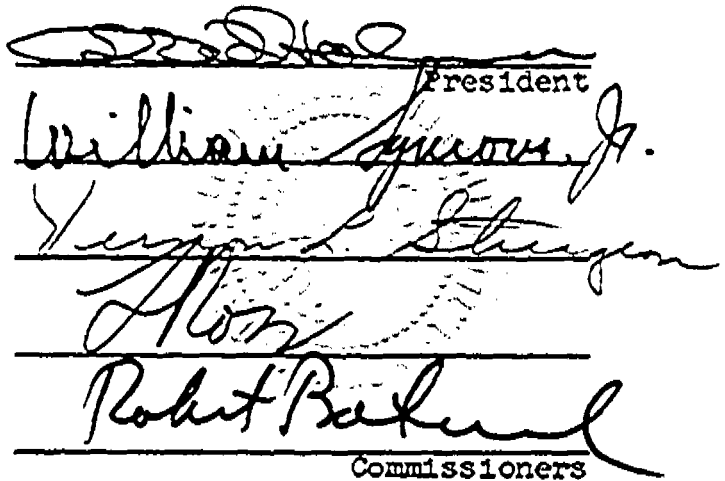 President
William Symons, Jr.
Vernon L. Sturgeon
Ross
Robert
Commissioners